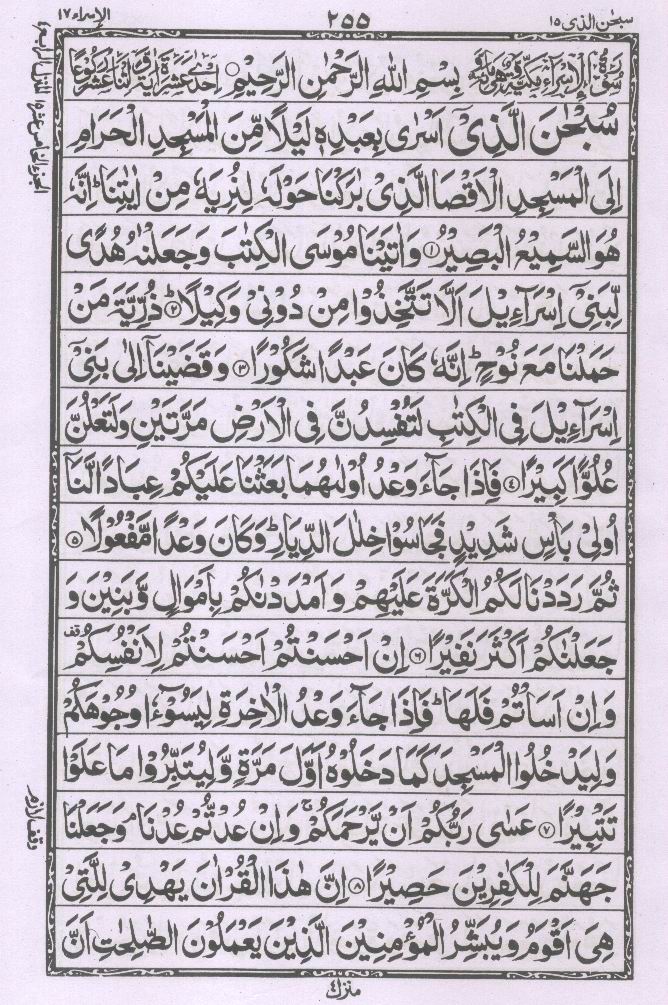 سبحٰن الذی ۱۵
۲۵۵
الإسراء ۱۷
بِسْمِ اللهِ الرَّحْمٰنِ الرَّحِيْمِ
سُبْحٰنَ الَّذِيْٓ اَسْرٰى بِعَبْدِهٖ لَيْلًا مِّنَ الْمَسْجِدِ الْحَرَامِ
اِلَى الْمَسْجِدِ الْاَقْصَا الَّذِيْ بٰرَكْنَا حَوْلَهٗ لِنُرِيَهٗ مِنْ اٰيٰتِنَا ؕ اِنَّهٗ
هُوَ السَّمِيْعُ الْبَصِيْرُ ۱ وَ اٰتَيْنَا مُوْسَى الْكِتٰبَ وَ جَعَلْنٰهُ هُدًى
لِّبَنِيْٓ اِسْرَآءِيْلَ اَلَّا تَتَّخِذُوْا مِنْ دُوْنِيْ وَكِيْلًا ؕ ۲ ذُرِّيَّةَ مَنْ
حَمَلْنَا مَعَ نُوْحٍ ؕ اِنَّهٗ كَانَ عَبْدًا شَكُوْرًا ۳ وَ قَضَيْنَآ اِلٰى بَنِيْٓ
اِسْرَآءِيْلَ فِي الْكِتٰبِ لَتُفْسِدُنَّ فِي الْاَرْضِ مَرَّتَيْنِ وَ لَتَعْلُنَّ
عُلُوًّا كَبِيْرًا ۴ فَاِذَا جَآءَ وَعْدُ اُوْلٰىهُمَا بَعَثْنَا عَلَيْكُمْ عِبَادًا لَّنَآ
اُولِيْ بَاْسٍ شَدِيْدٍ فَجَاسُوْا خِلٰلَ الدِّيَارِ ؕ وَ كَانَ وَعْدًا مَّفْعُوْلًا ۵
ثُمَّ رَدَدْنَا لَكُمُ الْكَرَّةَ عَلَيْهِمْ وَ اَمْدَدْنٰكُمْ بِاَمْوَالٍ وَّ بَنِيْنَ وَ
جَعَلْنٰكُمْ اَكْثَرَ نَفِيْرًا ۶ اِنْ اَحْسَنْتُمْ اَحْسَنْتُمْ لِاَنْفُسِكُمْ قف
وَ اِنْ اَسَاْتُمْ فَلَهَا ؕ فَاِذَا جَآءَ وَعْدُ الْاٰخِرَةِ لِيَسُوْٓءٗا وُجُوْهَكُمْ
وَ لِيَدْخُلُوا الْمَسْجِدَ كَمَا دَخَلُوْهُ اَوَّلَ مَرَّةٍ وَّ لِيُتَبِّرُوْا مَا عَلَوْا
تَتْبِيْرًا ۷ عَسٰى رَبُّكُمْ اَنْ يَّرْحَمَكُمْ ۚ وَ اِنْ عُدْتُّمْ عُدْنَا ۘ وَ جَعَلْنَا
جَهَنَّمَ لِلْكٰفِرِيْنَ حَصِيْرًا ۸ اِنَّ هٰذَا الْقُرْاٰنَ يَهْدِيْ لِلَّتِيْ
هِيَ اَقْوَمُ وَ يُبَشِّرُ الْمُؤْمِنِيْنَ الَّذِيْنَ يَعْمَلُوْنَ الصّٰلِحٰتِ اَنَّ
وقف لازم
منزل ٤